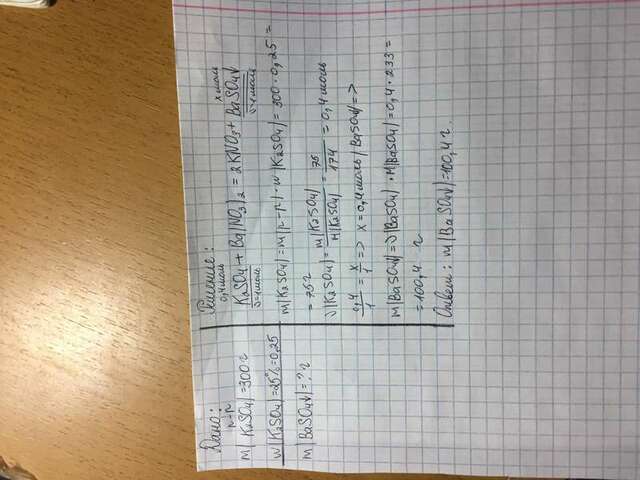 Дано:
р-р
m(K2SO4)=300 г
w(K2SO4)=25%=0,25
m(BaSO4↓)=? г
Решение:
0,4 моль x моль
K2SO4 + Ba(NO3)2 = 2KNO3 + BaSO4↓
ν=1 моль ν=1 моль
m(K2SO4)=m(р-р)·w(K2SO4)=300·0,25=
=75 г
ν(K2SO4)=m(K2SO4)/M(K2SO4)=75/174=0,4 моль
0,4/1=x/1=> x=0,4 моль(BaSO4)=>
m(BaSO4↓)=ν(BaSO4)·M(BaSO4)=0,4·233=
=100,4 г
Ответ: m(BaSO4↓)=100,4 г.